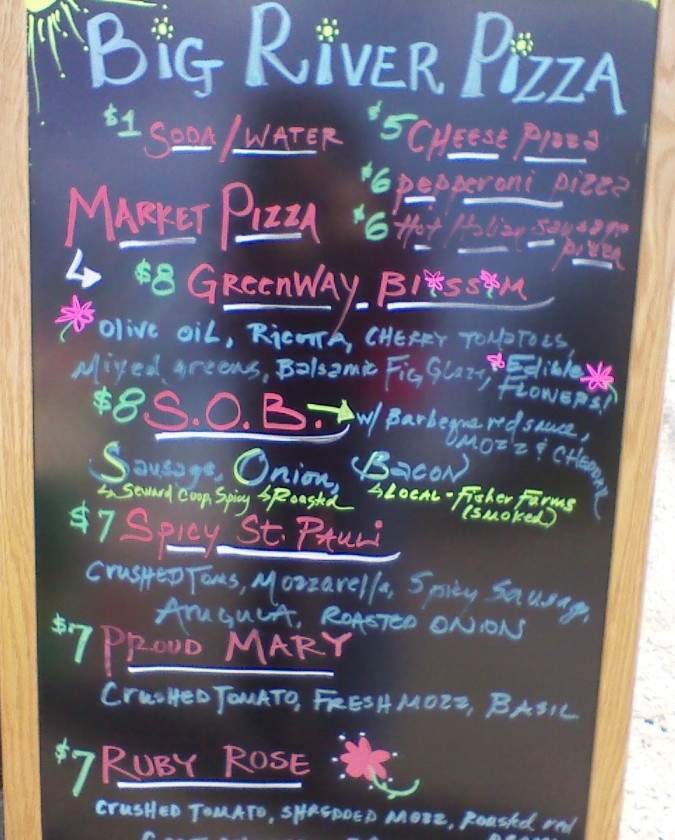 BIG RIVER PIZZA
$1 SODA/WATER
$5 CHEESE PIZZA
$6 pepperoni pizza
MARKET PIZZA
$6 Hot Italian sausage
pizza
$8 GREENWAY BLOSSOM
OLIVE OIL, RICOTTA, CHERRY TOMATOES,
Mixed greens, Balsamic Fig Glaze, Edible
FLOWERS!
$8 S.O.B. w/ Barbeque red sauce,
MOZZ & CHEDDAR
Sausage, Onion, BACON
Seward Coop, Spicy Roasted LOCAL - Fisher Farms
(SMOKED)
$7 Spicy St. Pauli
CRUSHED TOMS, Mozzarella, Spicy Sausage,
ARUGULA, ROASTED ONION
$7 PROUD MARY
CRUSHED TOMATO, FRESH MOZZ, BASIL
$7 RUBY ROSE
CRUSHED TOMATO, SHREDDED MOZZ, Roasted red